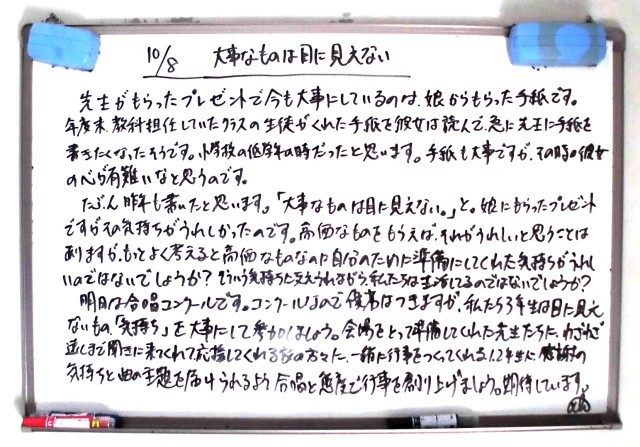 10/8 大事なものは目に見えない
先生がもらったプレゼントで今も大事にしているのは、娘からもらった手紙です。
年度末、教科担任していたクラスの生徒がくれた手紙を彼女は読んで、急に先生に手紙を
書きたくなったそうです。小学校の低学年の時だったと思います。手紙も大事ですが、その時の彼女
の心が有難いなと思うのです。
たぶん昨年も書いたと思います。「大事なものは目に見えない。」と。娘にもらったプレゼント
ですがその気持ちがうれしかったのです。高価なものをもらえば、それがうれしいと思うことは
ありますが、もっとよく考えると高価なものなのに自分のために準備にしてくれた気持ちがうれし
いのではないでしょうか?そういう気持ちに支えられながら、私たちは生活してるのではないでしょうか?
明日は合唱コンクールです。コンクールなので優劣はつきますが、私たち3年生は目に見え
ないもの、「気持ち」を大事にして参加しましょう。会場をとって準備してくれた先生たちに、わざわざ
遠くまで聞きに来てくれて応援してくれる家の方々に、一緒に行事をつくってくれる1、2年生に、感謝の
気持ちと曲の主題を届けられるよう合唱と態度で行事を創り上げましょう。期待しています。